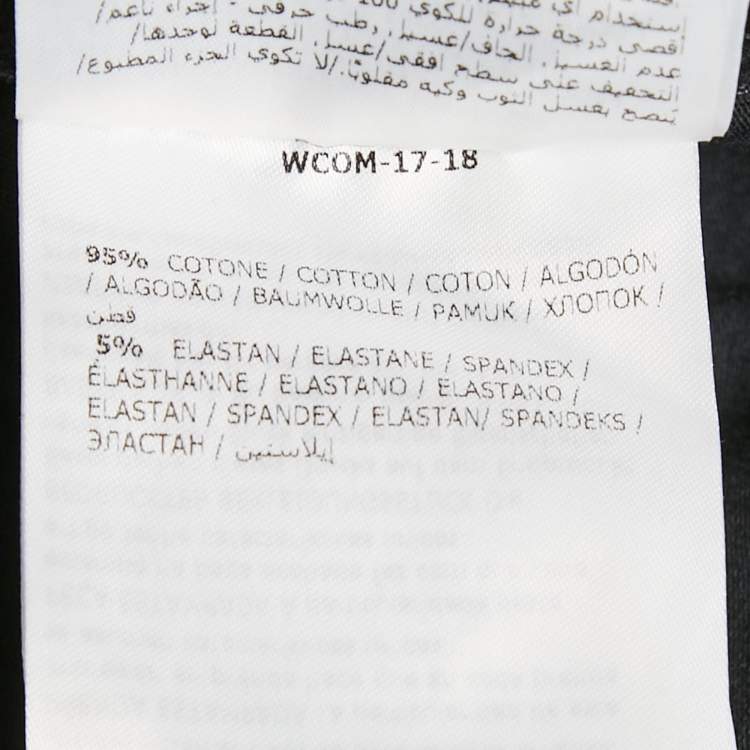 إستخدام أي
أقصى درجة حرارة للكوي 100
عدم العسيل. الجاف/عسيل. رطب حرفي - إجراء ناعم/
التجفيف على سطح افقي/عسيل. القطعة لوحدها/
ينصح بغسل الثوب وكيه مقلوبًا./لا تكوي الجزء المطبوع/
WCOM-17-18
95% COTONE / COTTON / COTON / ALGODÓN
/ ALGODÃO / BAUMWOLLE / PAMUK / ХЛОПОК /
قطن
5% ELASTAN / ELASTANE / SPANDEX /
ÉLASTHANNE / ELASTANO / ELASTANO /
ELASTAN / SPANDEX / ELASTAN/ SPANDEKS /
ЭЛАСТАН / إيلاستين